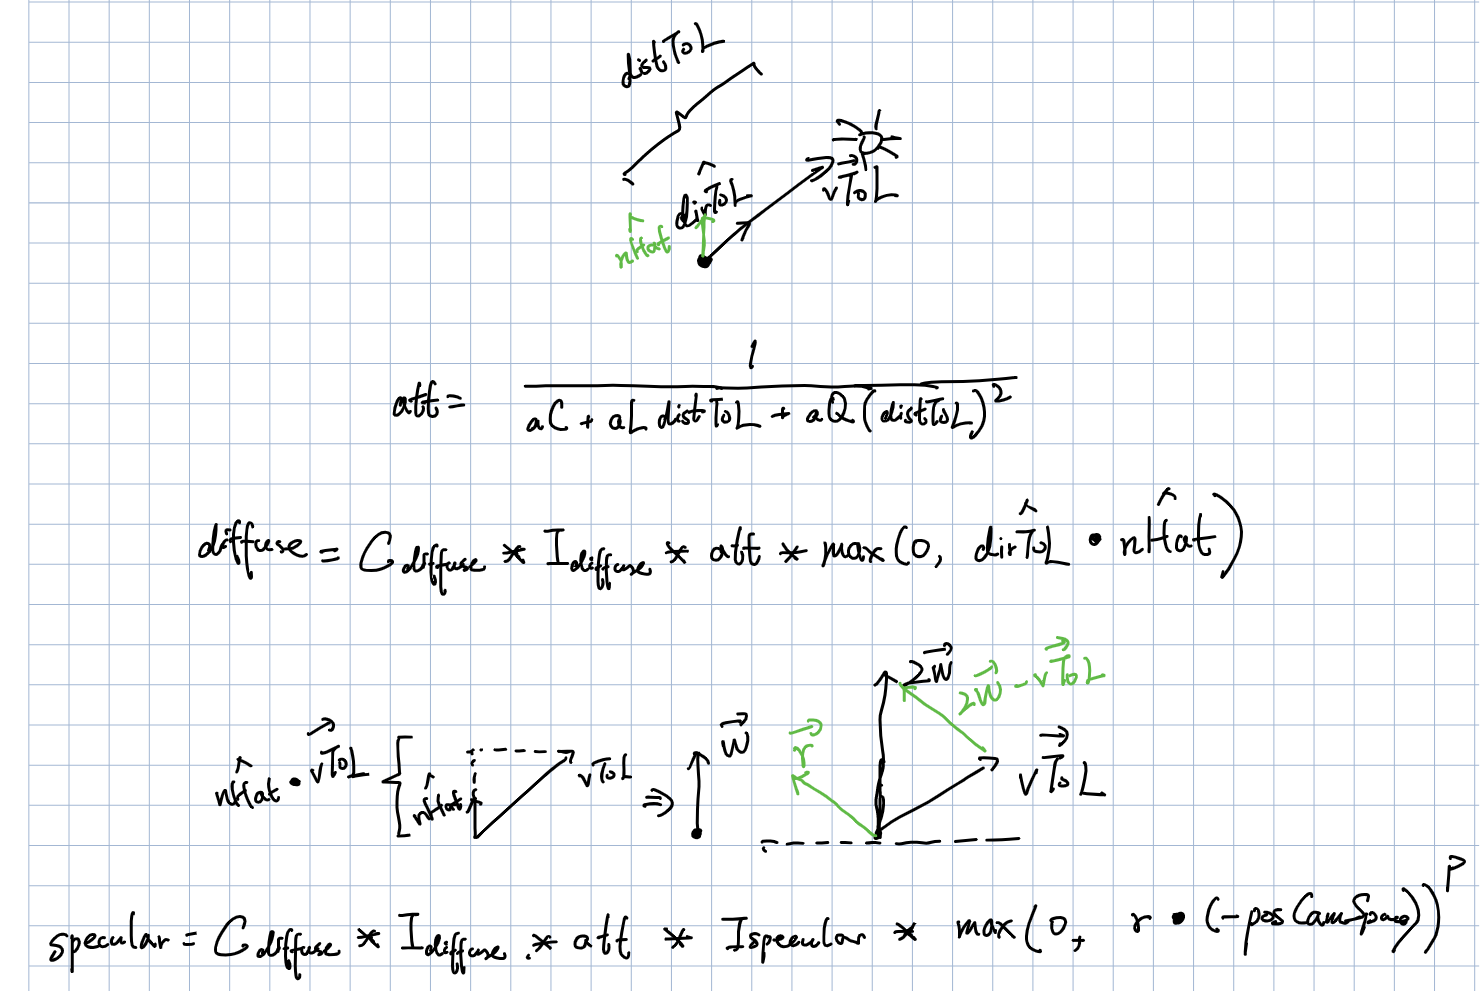 distToL
dirT̂oL
vToL⃗
n̂Hat
att = 1 / (aC + aL distToL + aQ (distToL)²)
diffuse = C_diffuse * I_diffuse * att * max(0, dirT̂oL • nĤat)
n̂Hat • vToL⃗ { n̂Hat vToL ⇒ w⃗
r⃗ 2w⃗ 2w⃗ - vToL⃗ vToL⃗
specular = C_diffuse * I_diffuse * att * Ispecular * max(0, r • (-posCamSpace))^P